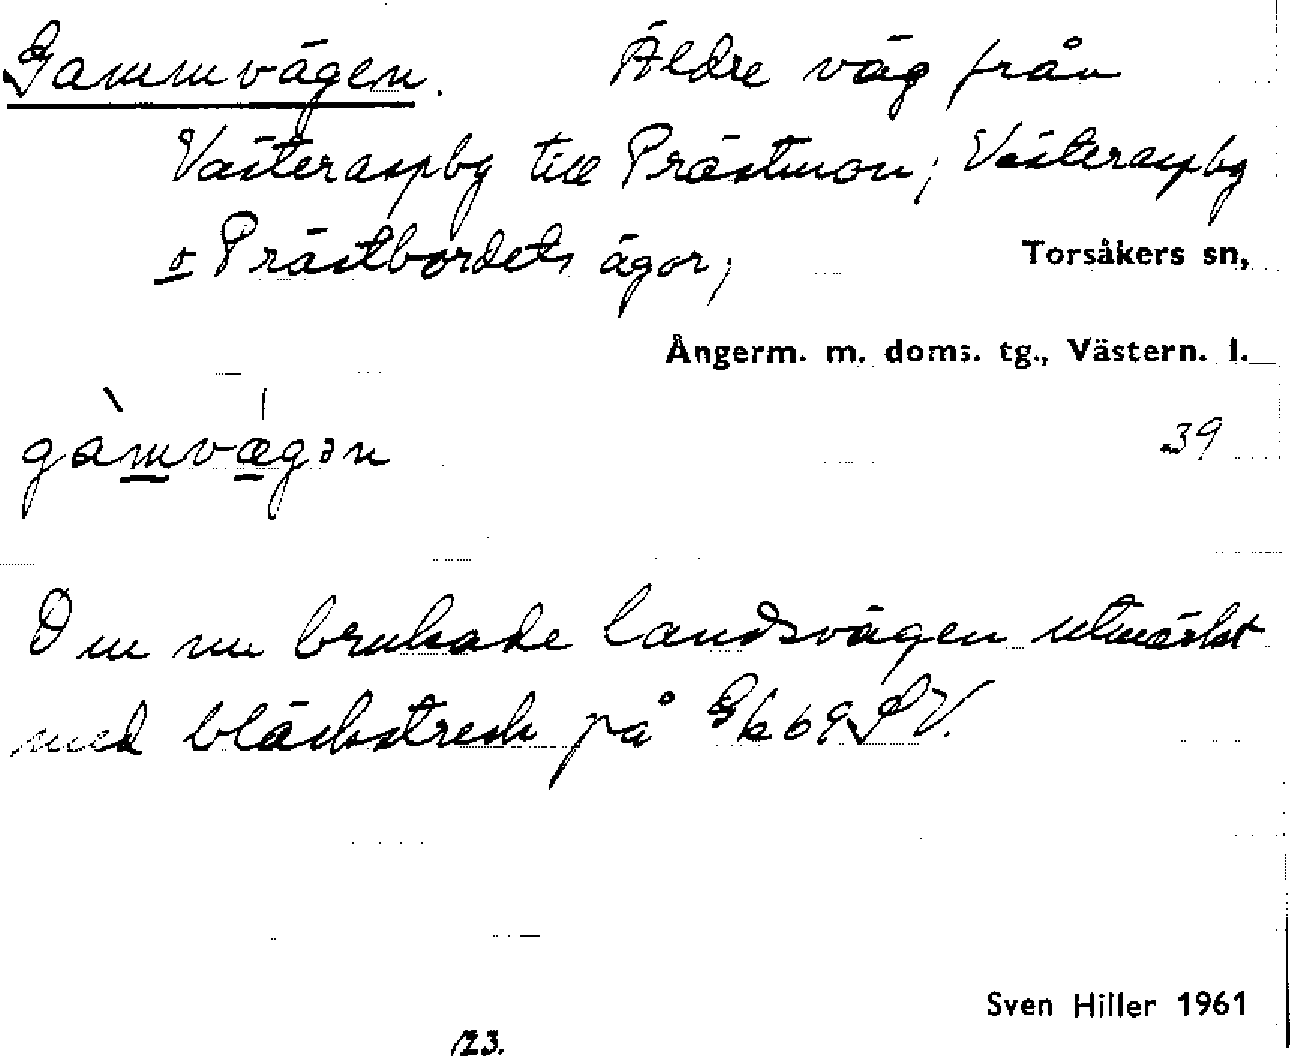 Gammvägen. Äldre väg från
Västeraspby till Prästmon; Västeraspby
o Prästbordets ägor;
Torsåkers sn,
Ångerm. m. doms. tg., Västern. l.
gàmvǽgən
39
Den nu brukade landsvägen utmärkt
med bläckstreck på Gk 69 SV.
Sven Hiller 1961
123.